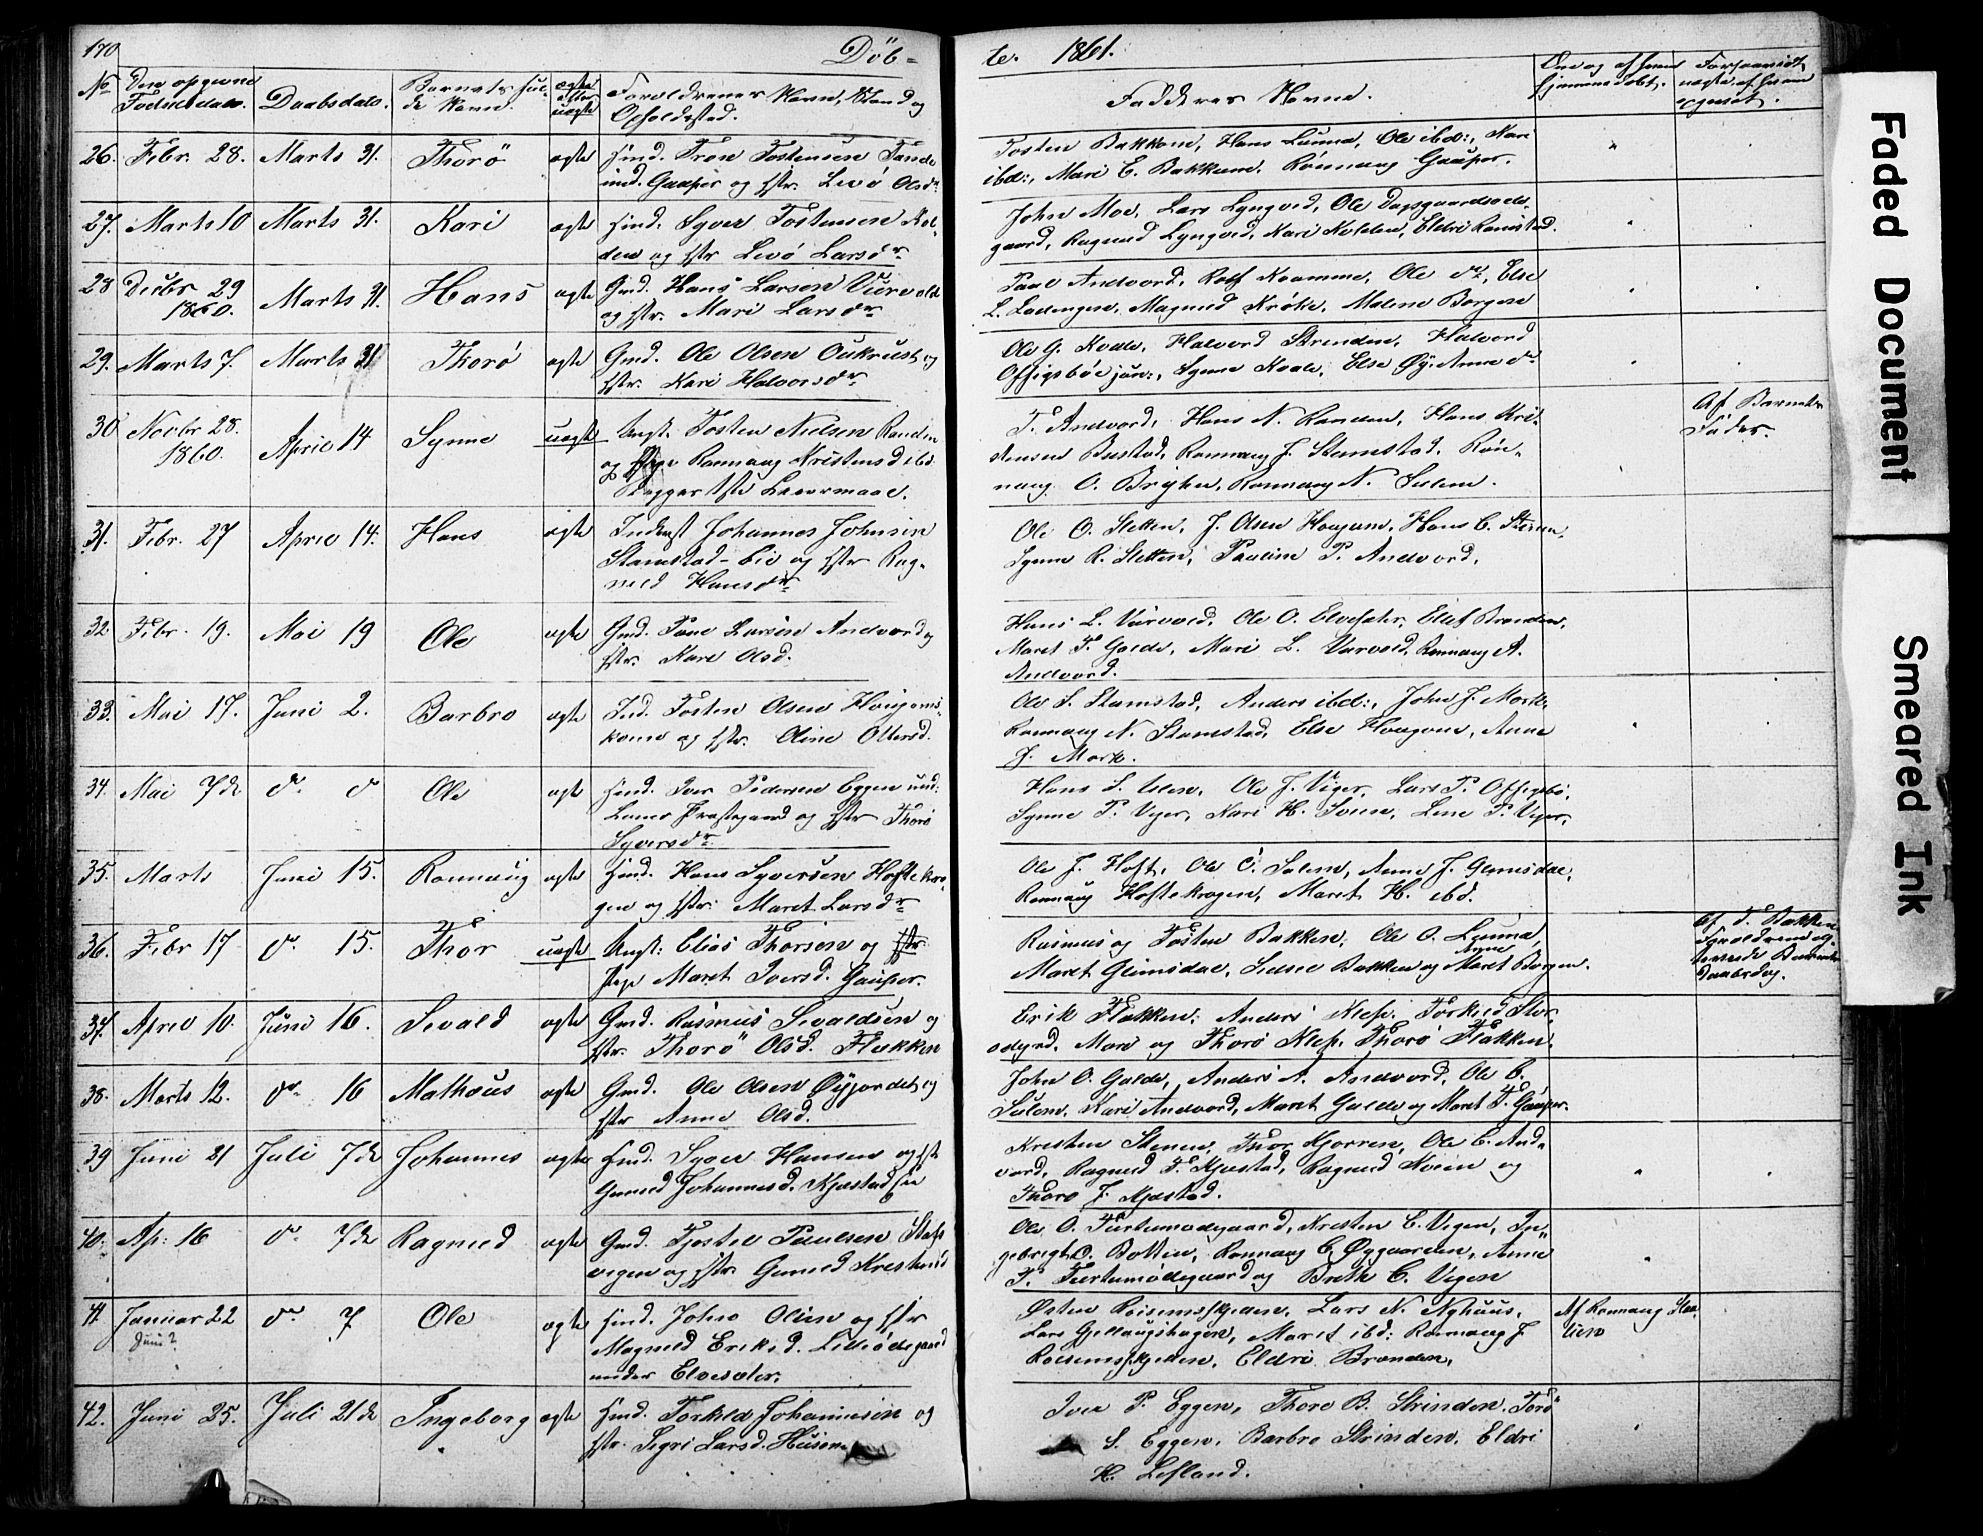 170
Döb=
te. 1861.
No
Den opgivne Fødselsdato.
Daabsdato.
Barnets fulde Navn.
ægte eller uægte
Forældrenes Navn, Stand og Opholdssted.
Faddernes Navne.
Om og af hvem hjemmedøbt.
26. Febr. 28. Marts 31. Thorö ægte Hmd. Tron Tostensen
und. Gaaper og Hstr. Livö Olsdr
Tosten Bakken, Hans Lunna, Ole ibd:, Kari
ibd:, Mari E. Bakken. Rönnaug Gaaper.
27. Marts 10 Marts 31. Kari ægte Hmd. Syver Tostensen Kol-
den og Hstr Livö Larsdr
John Moe, Lars Lyngved, Ole Dagsgaardsøde-
gaard, Ragnild Lyngved, Kari Kolden, Eldri Ramstad.
28 Decbr 29 1860. Marts 31. Hans ægte Gmd. Hans Larsen Vurvold
og Hstr. Mari Larsdr
Paal Andvord, Rolf Kvamme, Ole do, Else
L. Ladengen, Magnild Kröke, Malene Borgen
29. Marts 7. Marts 31 Thorö ægte Gmd. Ole Olsen Oukrust og
Hstr. Kari Halvorsdr
Ole G. Kvale, Halvord Strinden, Halvord
Offigsböe jun:, Synne Kvale, Else Øy. Anne do
30 Novbr 28. 1860. April 14 Synne uægte Ungk. Tosten Nielsen Randen
og Pige Rannaug Kristensd ibd
Begges 1ste Leiermaal.
T. Andvord, Hans N. Randen, Hans Kri-
stensen Bustad, Rannaug J. Stamstad, Rön-
naug O. Brikn, Rannaug N. Sulem.
Af Barnets
Fader.
31. Febr. 27 April 14. Hans ægte Inderst Johannes Johnsen
Stamstad-Eie og Hstr Rag-
nild Hansdr
Ole O. Sletten, J. Olsen Hougam, Hans C. Stenen,
Synne R. Sletten, Pauline P. Andvord.
32 Febr. 19. Mai 19 Ole ægte Gmd. Paul Larsen Andvord og
Hstr. Kari Olsd.
Hans L. Vurvold, Ole O. Elvesæter, Elef Branden,
Maret T. Galde, Mari L. Vurvold, Rannaug A.
Andvord.
33. Mai 17. Juni 2. Barbro ægte Ind. Tosten Olsen
og Hstr. Oline Ottersd.
Ole S. Stamstad, Anders ibd:, John J. Mork,
Rannaug N. Stamstad, Else Hougam, Anne
J. Mork.
34. Mai 7de do do Ole ægte Hmd. Iver Pedersen Eggen und:
Loms Præstegaard og Hstr Thorö
Syversdr
Hans S. Ulen, Ole J. Viger, Lars P. Offigsbö,
Synne P. Vigen, Kari H. Sveen, Lene P. Vigen.
35. Marts Juni 15. Rannaug ægte Hmd. Hans Syversen Hoftekro-
gen og Hstr: Maret Larsdr
Ole J. Hoft, Ole O. Sulem, Anne J. Glimsdal,
Rannaug Hoftekrogen, Maret H. ibd.
36. Febr 17 do 15. Thor uægte Ungk: Elias Thorsen og Hstr
Pige Maret Iversd. Gaaper.
Rasmus og Tosten Bakken, Ole O. Lunna,
Maret Glimsdal, Sidsel Bakken og Anne Maret Borgen.
Af T. Bakken
37. April 10. Juni 16. Sivald ægte Gmd. Rasmus Sivaldsen og
Hstr. Thorö Olsd. Flækken
Erik Flækken, Anders Klep. Torkild Stor-
odegrd, Mari og Thorö Klep. Thorö Flækken.
38. Marts 12. do 16 Mathæus ægte Gmd. Ole Olsen Øyjordet og
Hstr Anne Olsd.
John O. Galde, Anders A. Andvord, Ole C.
Sulem, Kari Andvord, Maret Galde og Maret T. Gaaper.
39 Juni 21 Juli 7de Johannes ægte Hmd. Syver Hansen og Hst
Gunild Johannesd. Kjæstad Eie
Kristen Stenen, Thor Kjorren, Ole C. And-
vord, Ragnild T. Kjæstad, Ragnild Kvien og
Thorö J. Kjæstad.
40. Ap: 16 do 7de Ragnild ægte Gmd. Tjostel Paulsen
vigen og Hstr. Gunild Kristensd
Ole O. Turtumødegaard, Kristen C. Vigen, In-
gebrigt O. Botten, Rannaug C. Øygaarden, Anne
P. Turtumødegaard og Breth C. Vigen
41 Januar 22 Juni? do 7 Ole ægte Hmd. John Olsen og Hstr
Magnild Eriksd. Lilleödegaard
under Elvesæter.
Østen Roisemsgjeden, Lars N. Nyhuus.
Lars Gjellaugshagen, Maret ibd: Rannaug J.
Roisemsgjeden, Eldri Branden,
Af Rannaug
42. Juni 25. Juli 21de Ingeborg ægte Hmd. Torkild Johannesen og
Hstr. Sigri Larsd. Husom
Iver P. Eggen, Thore B. Strinden, Torö
S. Eggen, Barbro Strinden, Eldri
H. Lefland.
Faded Document
Smeared Ink